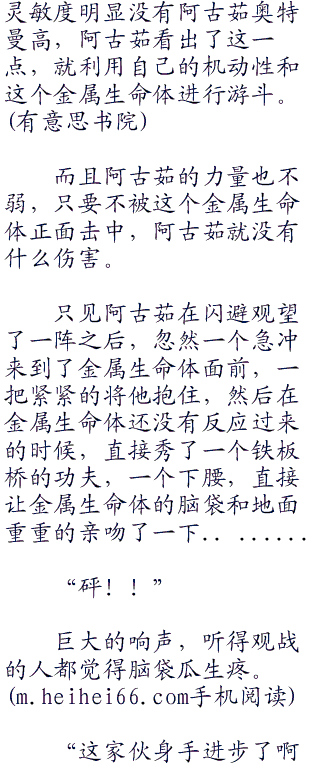 灵敏度明显没有阿古茹奥特
曼高，阿古茹看出了这一
点，就利用自己的机动性和
这个金属生命体进行游斗。
(有意思书院)
而且阿古茹的力量也不
弱，只要不被这个金属生命
体正面击中，阿古茹就没有
什么伤害。
只见阿古茹在闪避观望
了一阵之后，忽然一个急冲
来到了金属生命体面前，一
把紧紧的将他抱住，然后在
金属生命体还没有反应过来
的时候，直接秀了一个铁板
桥的功夫，一个下腰，直接
让金属生命体的脑袋和地面
重重的亲吻了一下.. ......
“砰！！”
巨大的响声，听得观战
的人都觉得脑袋瓜生疼。
(m.heihei66.com手机阅读)
“这家伙身手进步了啊